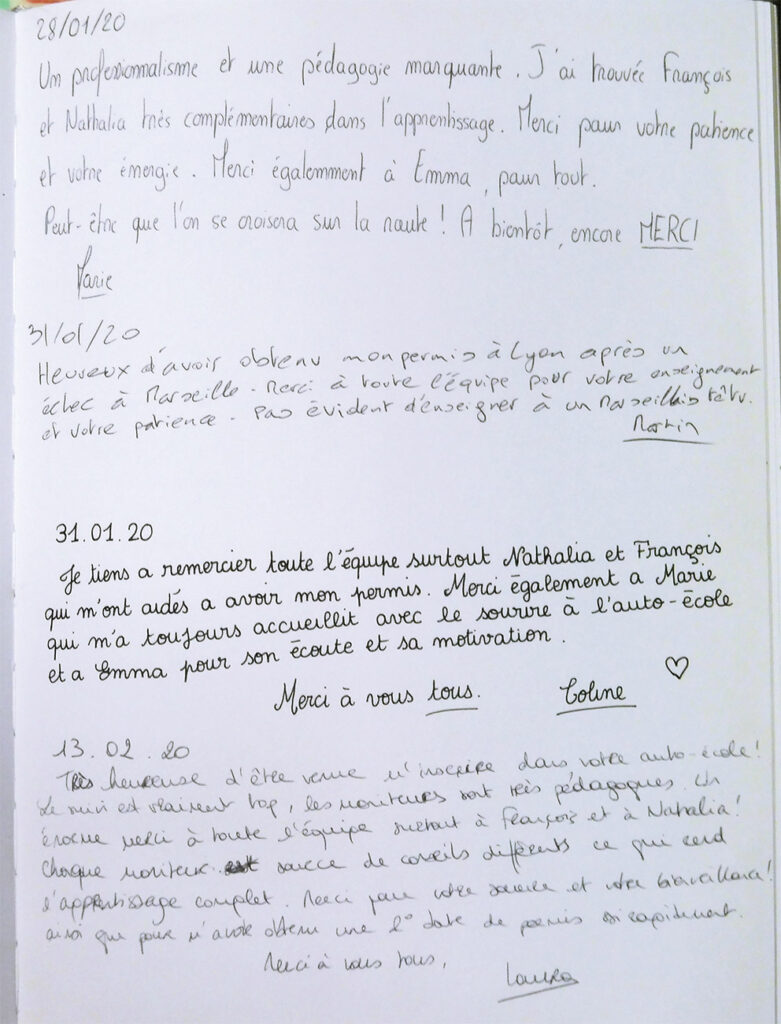 28/01/20
Un professionnalisme et une pédagogie marquante. J'ai trouvée François
et Nathalia très complémentaires dans l'apprentissage. Merci pour votre patience
et votre énergie. Merci égalemment à Emma, pour tout.
Peut-être que l'on se croisera sur la route ! A bientôt, encore MERCI
Marie
31/01/20
Heureux d'avoir obtenu mon permis à Lyon après un
échec à Marseille. Merci à toute l'équipe pour votre enseignement
et votre patience. Pas évident d'enseigner à un Marseillais têtu.
Martin
31.01.20
Je tiens a remercier toute l'équipe surtout Nathalia et François
qui m'ont aidés a avoir mon permis. Merci également a Marie
qui m'a toujours accueillit avec le sourire à l'auto-école
et a Emma pour son écoute et sa motivation.
Merci à vous tous. Coline ♡
13.02.20
Très heureuse d'être venue m'inscrire dans votre auto-école !
Le suivi est vraiment top, les moniteurs sont très pédagogues. Un
énorme merci à toute l'équipe surtout à François et à Nathalia !
Chaque moniteur est source de conseils différents ce qui rend
l'apprentissage complet. Merci pour votre sourire et votre bienveillance !
ainsi que pour m'avoir obtenu une 1° date de permis si rapidement.
Merci à vous tous,
Laura